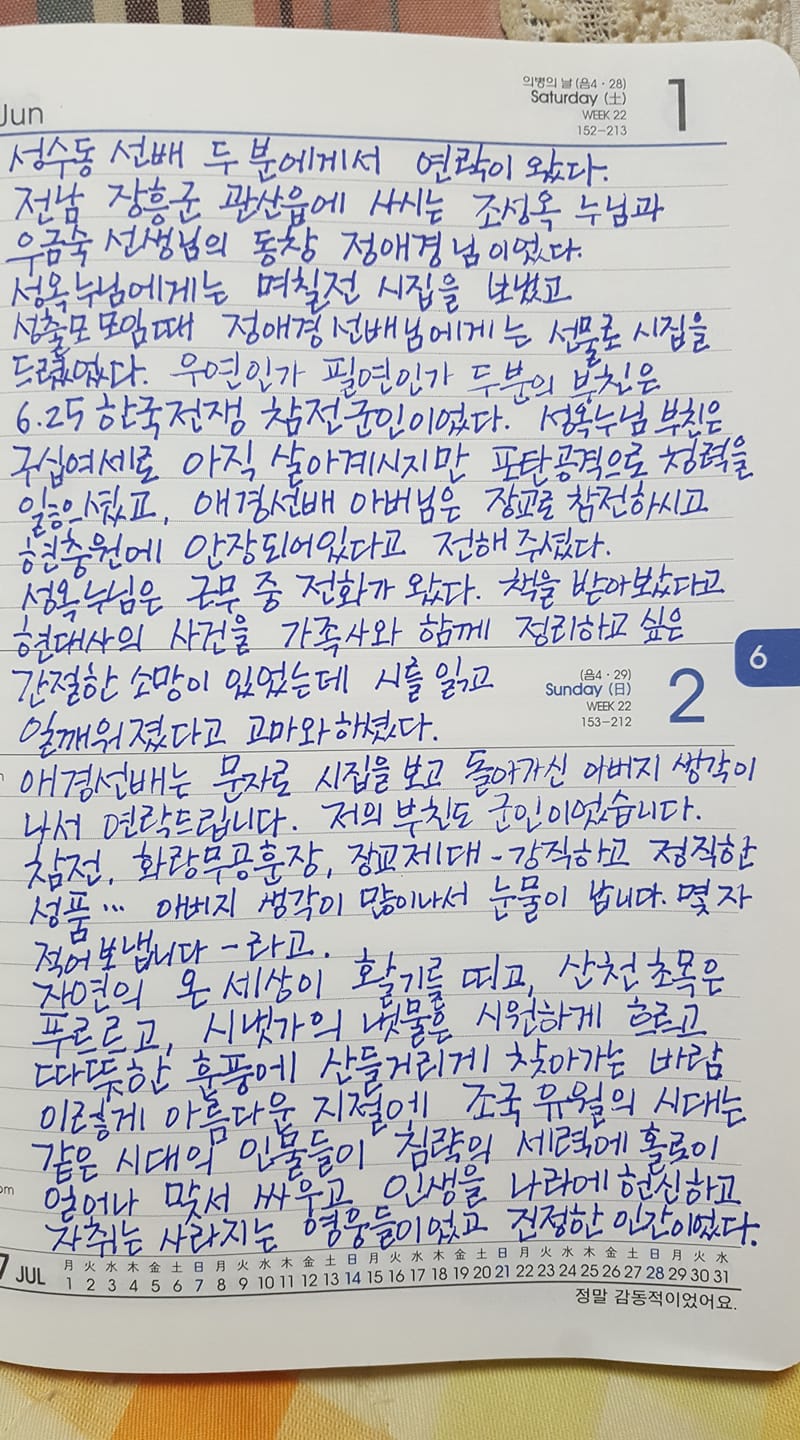 Jun
의병의 날 (음4·28)
Saturday (土)
WEEK 22
152-213
1
성수동 선배 두 분에게서 연락이 왔다.
전남 장흥군 관산읍에 사시는 조성옥 누님과
우금숙 선생님의 동창 정애경님이었다.
성옥누님에게는 며칠전 시집을 보냈고
성출모 모임때 정애경선배님에게는 선물로 시집을
드렸었다. 우연인가 필연인가 두분의 부친은
6.25 한국전쟁 참전군인이었다. 성옥누님 부친은
구십여세로 아직 살아계시지만 포탄공격으로 청력을
잃으셨고, 애경선배 아버님은 장교로 참전하시고
현충원에 안장되어있다고 전해주셨다.
성옥누님은 근무 중 전화가 왔다. 책을 받아보았다고
현대사의 사건을 가족사와 함께 정리하고 싶은
간절한 소망이 있었는데 시를 읽고
일깨워졌다고 고마와해했다.
6
(음4·29)
Sunday (日)
WEEK 22
153-212
2
애경선배는 문자로 시집을 보고 돌아가신 아버지 생각이
나서 연락드립니다. 저의 부친도 군인이었습니다.
참전, 화랑무공훈장, 장교제대-강직하고 정직한
성품… 아버지 생각이 많이나서 눈물이 납니다. 몇 자
적어보냅니다-라고.
자연의 온 세상이 활기를 띠고, 산천초목은
푸르르고, 시냇가의 냇물은 시원하게 흐르고
따뜻한 훈풍에 산들거리게 찾아가는 바람
이렇게 아름다운 지절에 조국 유월의 시대는
같은 시대의 인물들이 침략의 세력에 홀로이
일어나 맞서 싸우고 인생을 나라에 헌신하고
자취는 사라지는 영웅들이었고 진정한 인간이었다.
7 JUL
月 火 水 木 金 土 日 月 火 水 木 金 土 日 月 火 水 木 金 土 日 月 火 水 木 金 土 日 月 火 水
1 2 3 4 5 6 7 8 9 10 11 12 13 14 15 16 17 18 19 20 21 22 23 24 25 26 27 28 29 30 31
정말 감동적이었어요.